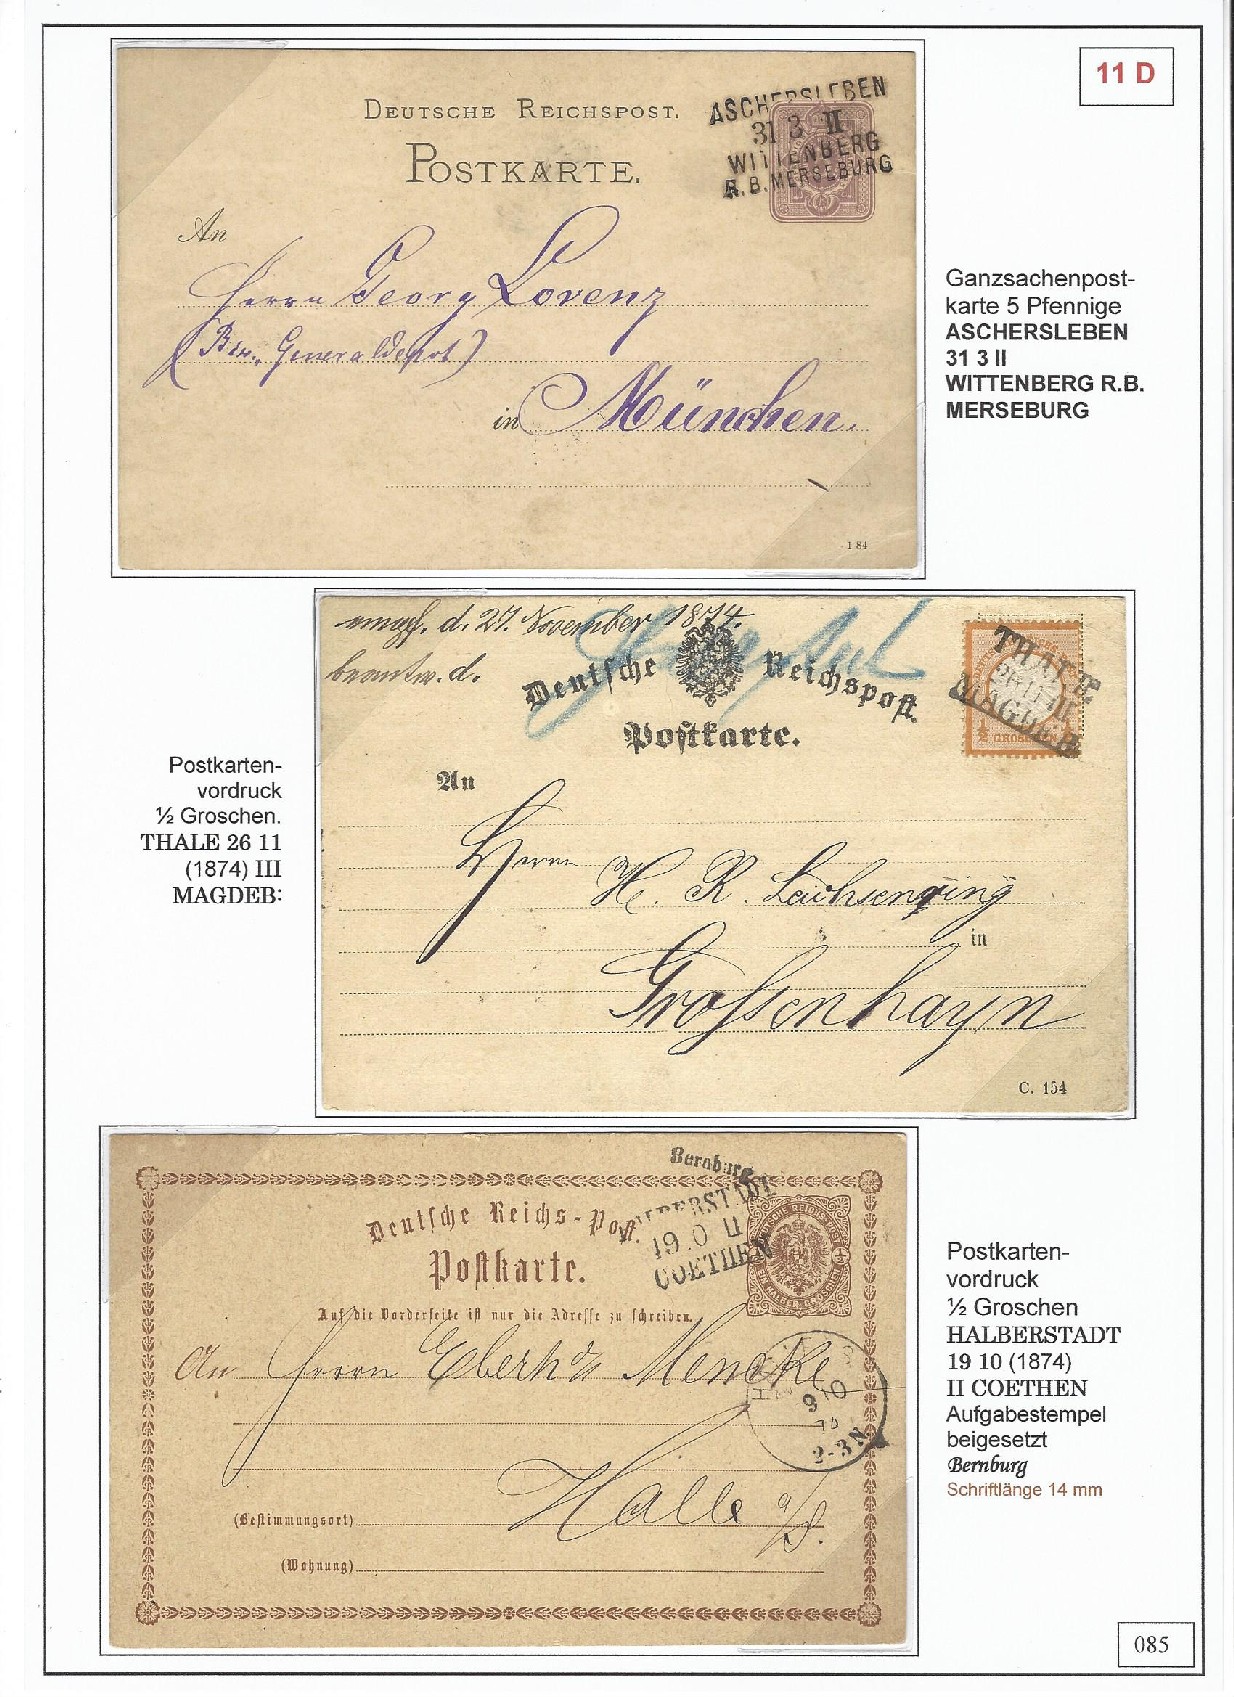 11 D
DEUTSCHE REICHSPOST.
POSTKARTE.
ASCHERSLEBEN
31 3 II
WITTENBERG
R.B. MERSEBURG
An
Herrn Georg Lorenz
Generaldepot)
in München.
1 84
Ganzsachenpost-
karte 5 Pfennige
ASCHERSLEBEN
31 3 II
WITTENBERG R.B.
MERSEBURG
empf. d. 27. November 1874.
beantw. d.
Deutsche Reichspost.
Postkarte.
THALE
26 11 III
MAGDEB
½
An
Herrn
H. R.
in
Grossenhayn
C. 154
Postkarten-
vordruck
½ Groschen.
THALE 26 11
(1874) III
MAGDEB:
Bernburg
HALBERSTADT
19 10 II
COETHEN
Deutsche Reichs-Post.
Postkarte.
Auf die Vorderseite ist nur die Adresse zu schreiben.
An Herrn Eberh'd Mencke
9 10
2-3N
Halle a/S.
(Bestimmungsort)
(Wohnung)
Postkarten-
vordruck
½ Groschen
HALBERSTADT
19 10 (1874)
II COETHEN
Aufgabestempel
beigesetzt
Bernburg
Schriftlänge 14 mm
085